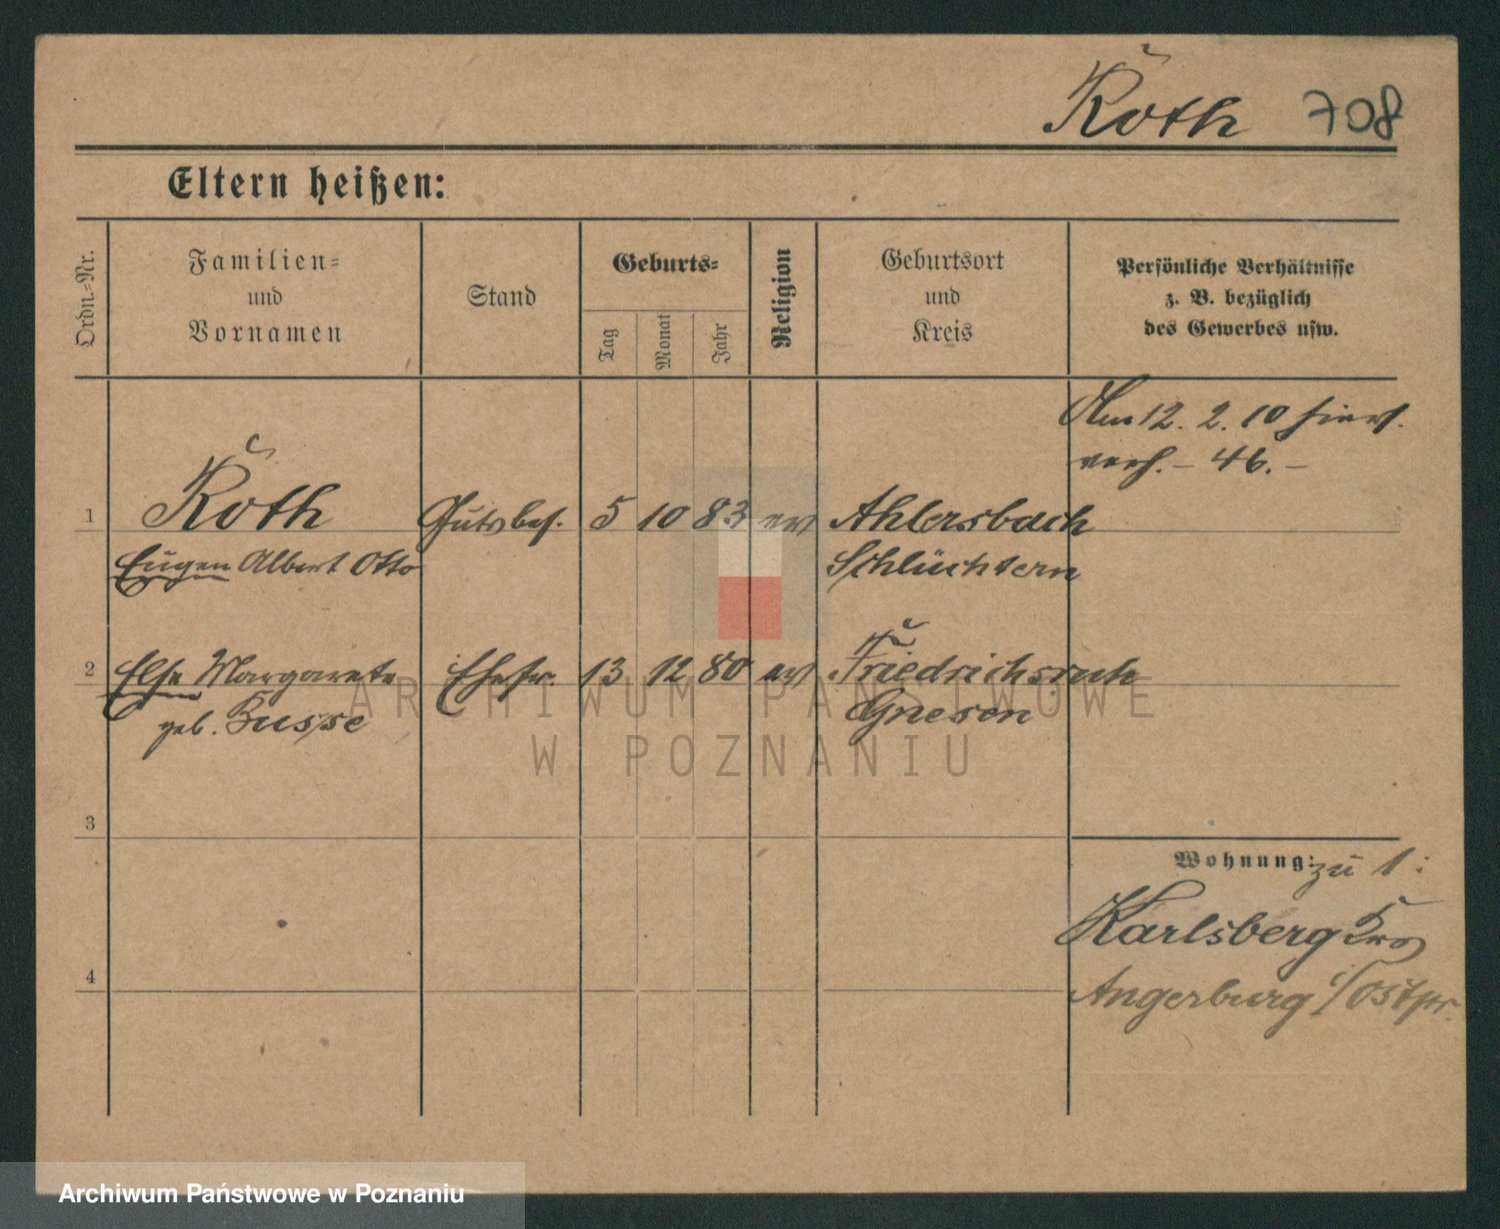 Roth 708
Eltern heißen:
Ordn.-Nr.
Familien-
und
Vornamen
Stand
Geburts-
Tag
Monat
Jahr
Religion
Geburtsort
und
Kreis
Persönliche Verhältnisse
z. B. bezüglich
des Gewerbes usw.
Am 12. 2. 10 hiers.
verh. – 46. –
1 Roth Gutsbes. 5 10 83 ev Ahlersbach
Eugen Albert Otto Schlüchtern
2 Else Margarete Ehefr. 13 12 80 ev Friedrichsruh
geb. Busse Gnesen
3
Wohnung: zu 1:
Karlsberg Krs
4
Angerburg i/Ostpr.
ARCHIWUM PAŃSTWOWE
W POZNANIU
Archiwum Państwowe w Poznaniu